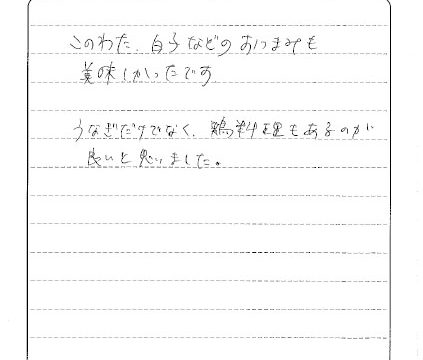 このわた、白子などのおつまみも
美味しかったです
うなぎだけでなく、鶏料理もあるのが
良いと思いました。